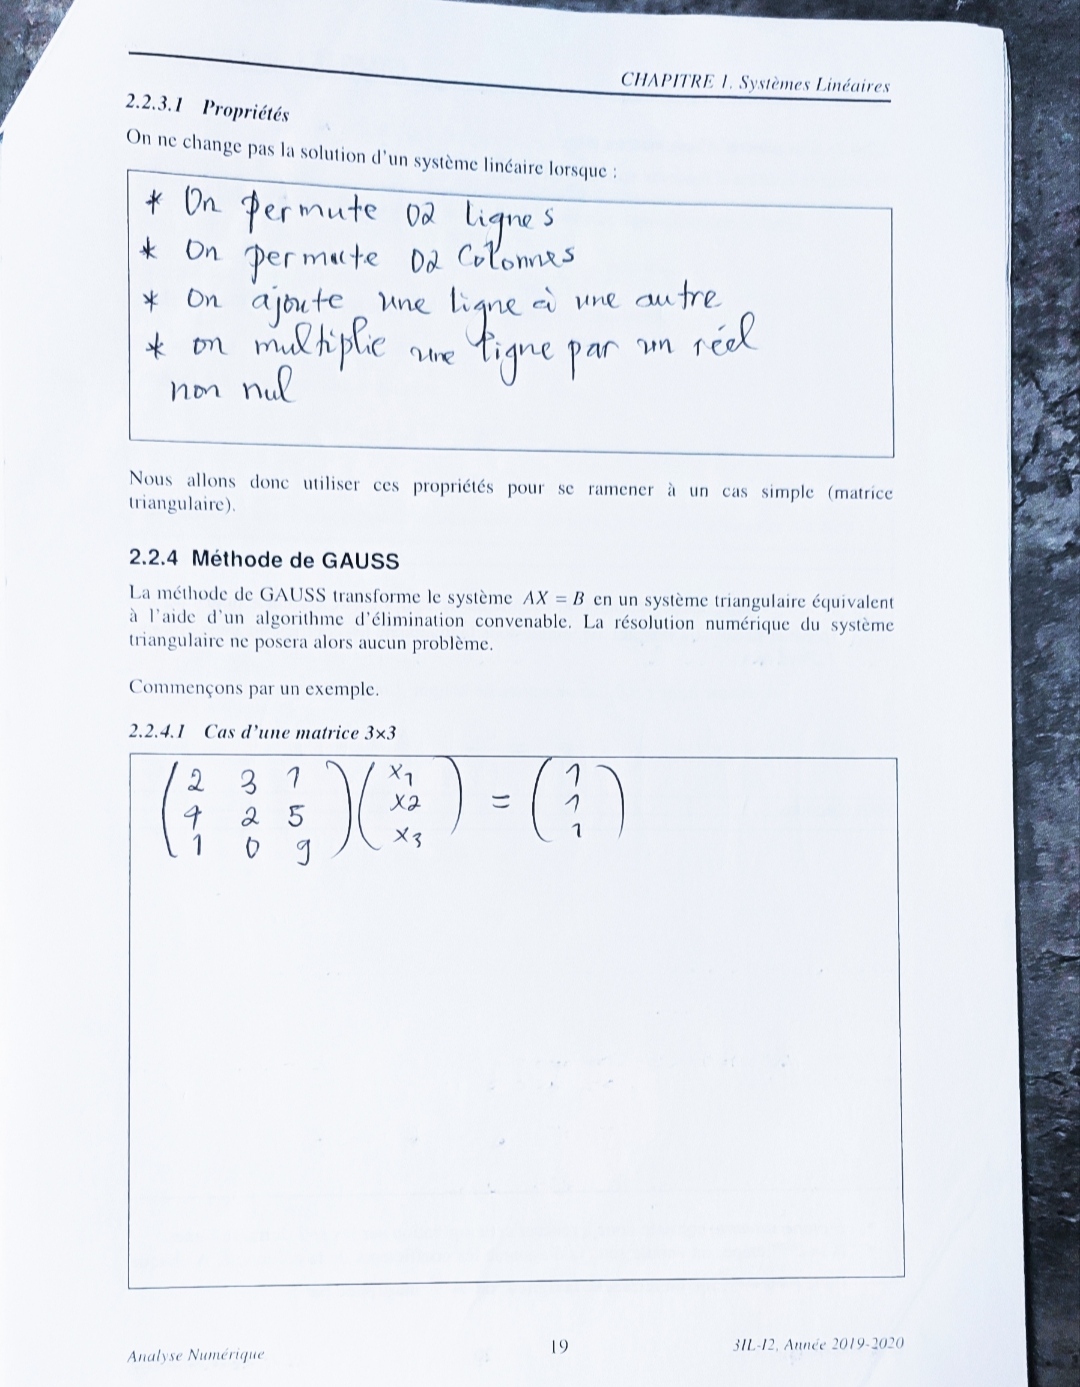 CHAPITRE 1. Systèmes Linéaires
2.2.3.1 Propriétés
On ne change pas la solution d'un système linéaire lorsque :
* On permute 02 lignes
* On permute 02 Colonnes
* On ajoute une ligne à une autre
* on multiplie une ligne par un réel
non nul
Nous allons donc utiliser ces propriétés pour se ramener à un cas simple (matrice
triangulaire).
2.2.4 Méthode de GAUSS
La méthode de GAUSS transforme le système AX = B en un système triangulaire équivalent
à l'aide d'un algorithme d'élimination convenable. La résolution numérique du système
triangulaire ne posera alors aucun problème.
Commençons par un exemple.
2.2.4.1 Cas d'une matrice 3×3
2 3 1 x1 1
4 2 5 x2 = 1
1 0 9 x3 1
Analyse Numérique 19 3IL-I2, Année 2019-2020